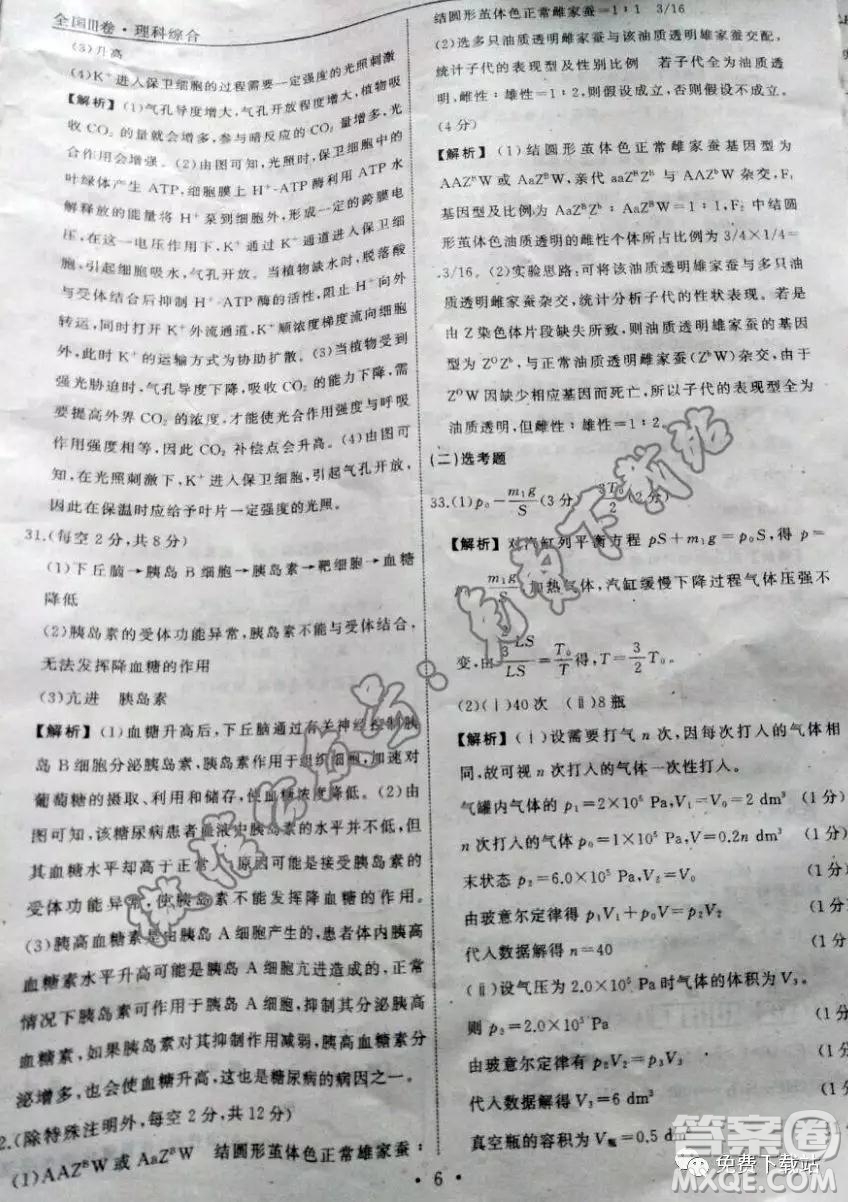 全国III卷·理科综合
(3)升高
(4)K⁺进入保卫细胞的过程需要一定强度的光照刺激
【解析】(1)气孔导度增大,气孔开放程度增大,植物吸
收CO₂的量就会增多,参与暗反应的CO₂量增多,光
合作用会增强。(2)由图可知,光照时,保卫细胞中的
叶绿体产生ATP,细胞膜上H⁺-ATP酶利用ATP水
解释放的能量将H⁺泵到细胞外,形成一定的跨膜电
压,在这一电压作用下,K⁺通过K⁺通道进入保卫细
胞,引起细胞吸水,气孔开放。当植物缺水时,脱落酸
与受体结合后抑制H⁺-ATP酶的活性,阻止H⁺向外
转运,同时打开K⁺外流通道,K⁺顺浓度梯度流向细胞
外,此时K⁺的运输方式为协助扩散。(3)当植物受
强光胁迫时,气孔导度下降,吸收CO₂的能力下降,需
要提高外界CO₂的浓度,才能使光合作用强度与呼吸
作用强度相等,因此CO₂补偿点会升高。(4)由图可
知,在光照刺激下,K⁺进入保卫细胞,引起气孔开放,
因此在保温时应给予叶片一定强度的光照。
31.(每空2分,共8分)
(1)下丘脑→胰岛B细胞→胰岛素→靶细胞→血糖
降低
(2)胰岛素的受体功能异常,胰岛素不能与受体结合,
无法发挥降血糖的作用
(3)亢进 胰岛素
【解析】(1)血糖升高后,下丘脑通过有关神经控制胰
岛B细胞分泌胰岛素,胰岛素作用于组织细胞,加速对
葡萄糖的摄取、利用和储存,使血糖浓度降低。(2)由
图可知,该糖尿病患者血液中胰岛素的水平并不低,但
其血糖水平却高于正常人,原因可能是接受胰岛素的
受体功能异常,使胰岛素不能发挥降血糖的作用。
(3)胰高血糖素是由胰岛A细胞产生的,患者体内胰高
血糖素水平升高可能是胰岛A细胞亢进造成的,正常
情况下胰岛素可作用于胰岛A细胞,抑制其分泌胰高
血糖素,如果胰岛素对其抑制作用减弱,胰高血糖素分
泌增多,也会使血糖升高,这也是糖尿病的病因之一。
2.(除特殊注明外,每空2分,共12分)
(1)AAZᴮW或AaZᴮW 结圆形茧体色正常雄家蚕:
结圆形茧体色正常雌家蚕=1:1 3/16
(2)选多只油质透明雌家蚕与该油质透明雄家蚕交配,
统计子代的表现型及性别比例 若子代全为油质透
明,雌性:雄性=1:2,则假设成立,否则假设不成立。
(4分)
【解析】(1)结圆形茧体色正常雌家蚕基因型为
AAZᴮW或AaZᴮW,亲代aaZᴮZᵇ与AAZᴮW杂交,F₁
基因型及比例为AaZᴮZᵇ:AaZᴮW=1:1,F₂中结圆
形茧体色油质透明的雌性个体所占比例为3/4×1/4=
3/16。(2)实验思路:可将该油质透明雄家蚕与多只油
质透明雌家蚕杂交,统计分析子代的性状表现。若是
由Z染色体片段缺失所致,则油质透明雄家蚕的基因
型为Z⁰Zᵇ,与正常油质透明雌家蚕(ZᵇW)杂交,由于
Z⁰W因缺少相应基因而死亡,所以子代的表现型全为
油质透明,但雌性:雄性=1:2。
(二)选考题
33.(1)p₀-m₁g/S(3分) 3T₀/2(2分)
【解析】对汽缸列平衡方程pS+m₁g=p₀S,得p=
m₁g/S,加热气体,汽缸缓慢下降过程气体压强不
变,由(2/3)LS/LS=T₀/T得,T=3/2T₀。
(2)(Ⅰ)40次 (Ⅱ)8瓶
【解析】(Ⅰ)设需要打气n次,因每次打入的气体相
同,故可视n次打入的气体一次性打入。
气罐内气体的p₁=2×10⁵ Pa,V₁=V₀=2 dm³ (1分)
n次打入的气体p₀=1×10⁵ Pa,V=0.2n dm³ (1分)
末状态p₂=6.0×10⁵ Pa,V₂=V₀ (1分)
由玻意尔定律得p₁V₁+p₀V=p₂V₀ (1分
代入数据解得n=40 (1分
(Ⅱ)设气压为2.0×10⁵ Pa时气体的体积为V₃。
则p₃=2.0×10⁵ Pa (1分
由玻意尔定律有p₂V₂=p₃V₃ (1分
代入数据解得V₃=6 dm³ (1分
真空瓶的容积为V瓶=0.5 dm³
·6·
答案圈
免费下载站